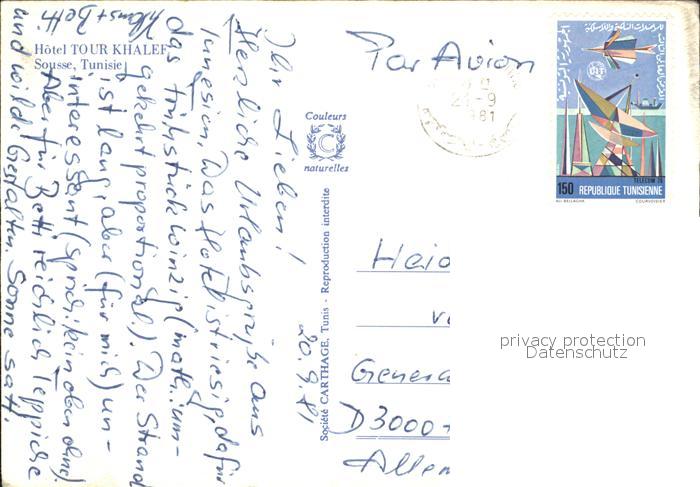 Hôtel TOUR KHALEF
Sousse, Tunisie
Par Avion
21-9
1981
TELECOM 75
150 REPUBLIQUE TUNISIENNE
ALI BELLAGHA COURVOISIER
Couleurs
C
naturelles
Société CARTHAGE, Tunis - Reproduction interdite
20.9.81
Ihr Lieben!
Herzliche Urlaubsgrüße aus
Tunesien. Das Hotel ist riesig, dafür
das Frühstück winzig (math.: um-
gekehrt proportional). Der Strand
ist lang, aber (für mich) un-
interessant (sprich: kein oben ohne)
Aber für Betti reichlich Teppiche
und wild Gestalten. Sonne satt.
Klaus + Betti
Heid
v
Genera
D3000-
Allem
privacy protection
Datenschutz